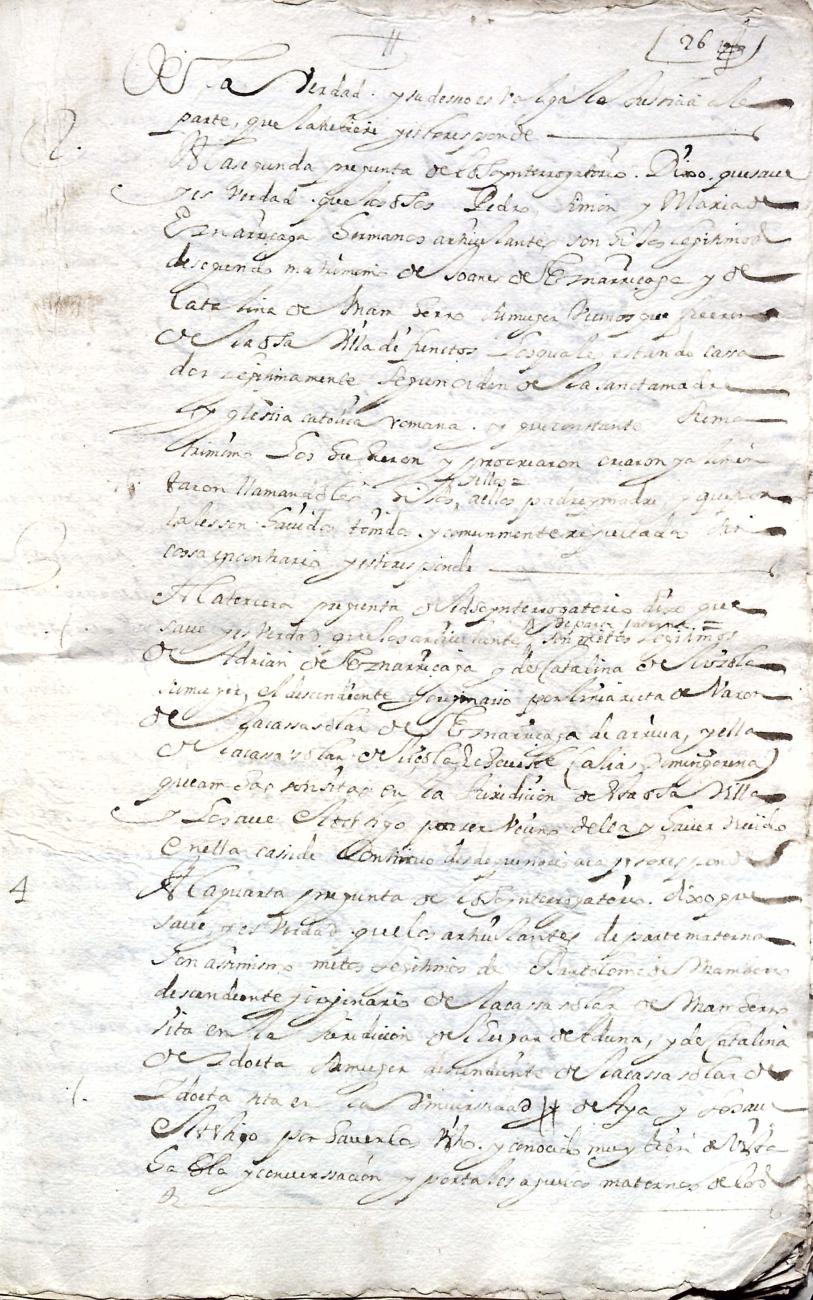 26
de la Verdad. y su deseo es Valga la Justiçia a la
parte, que la tubiere y esto responde
2.
A la segunda pregunta de el dho ynterrogatorio. Dixo. que saue
y es Verdad. que los dhos Pedro, Simon y Maria de
Eznarriçaga hermanos articulantes son hijos legitimos
de segundo matrimonio de Joanes de Eznarriçaga y de
Catalina de Mamberro su muger Vecinos que fueron
de la dha Villa defunctos los quales estando cassa
dos legitimamente segun orden de la sancta madre
yglesia catolica romana. y que constante su ma
trimonio los hubieron y procrearon criaron y alimen
taron llamandoles hijos, y ellos = a ellos padre y madre, y que por
tales son hauidos tenidos. y comunmente reputados sin
cossa en contrario y esto responde
3
A la tercera pregunta del dho ynterrogatorio dixo que
saue y es Verdad que los articulantes de parte paterna = son nietos legitimos
de Adrian de Eznarriçaga y de Catalina de
su muger, el descendiente y originario por linia recta de Varon
de la cassa solar de Eznarriçaga de arriua, y ella
de la cassa solar de (alias Domingorena)
que ambas son sitas en la Juridicion de esta dha Villa
y lo saue el testigo por ser Vecino della y hauer viuido
en ella casi de Continuo desde que nacio aca y esto responde
4
A la quarta pregunta de el dho ynterrogatorio. dixo que
saue, y es Verdad que los articulantes de parte materna
son asimismo nietos legitimos de Bartolome de Mamberro
descendiente y originario de la cassa solar de Mamberro
sita en la Juridicion de el lugar de Aduna, y de Catalina
de Ydoeta su muger descendiente de la cassa solar de
Ydoeta sita en la Vniuersidad de Aya y lo saue
el testigo por hauerlos Visto. y conocido muy bien de Vista
habla y conuerssacion y por tales aguelos maternos de los